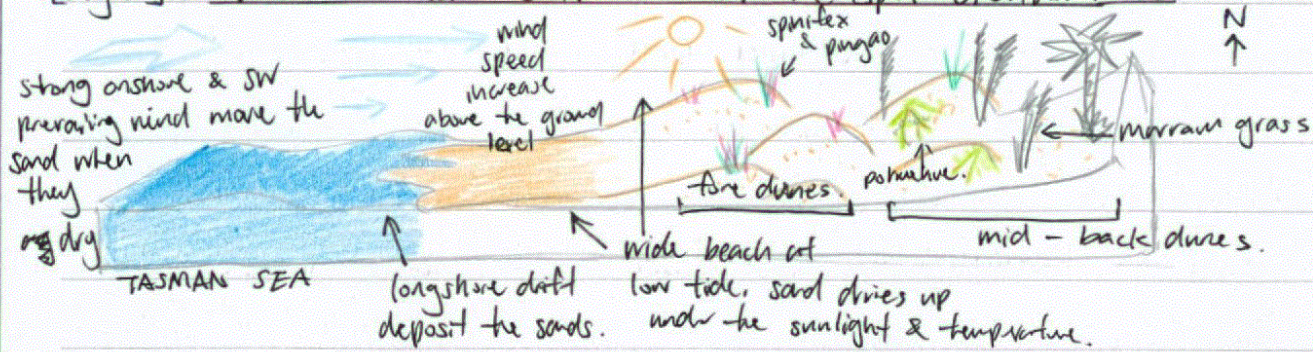 N
strong onshore & SW
prevailing wind move the
sand when
they
dry
wind
speed
increase
above the ground
level
spinifex
& pingao
marram grass
fore dunes.
mid - back dunes.
TASMAN SEA
longshore drift
deposit the sands.
wide beach at
low tide, sand dries up
under the sunlight & temperature.